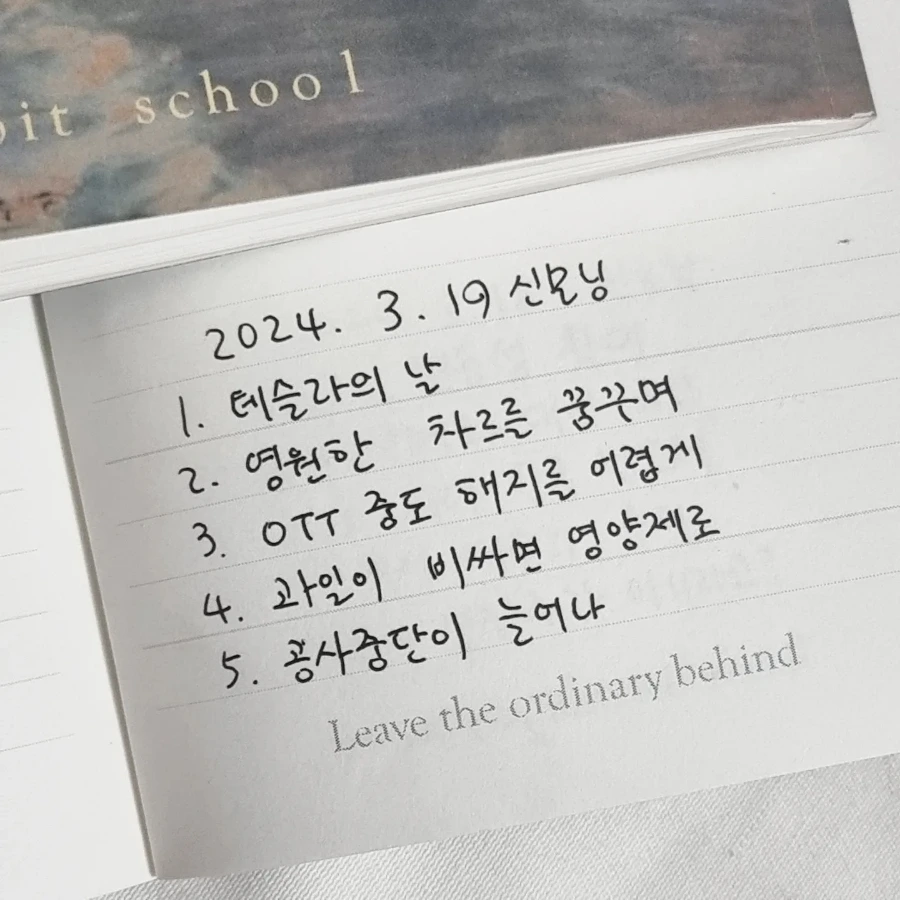 bit school
2024. 3. 19 신모닝
1. 테슬라의 날
2. 영원한 차르를 꿈꾸며
3. OTT 중도 해지를 어렵게
4. 과일이 비싸면 영양제로
5. 공사중단이 늘어나
Leave the ordinary behind